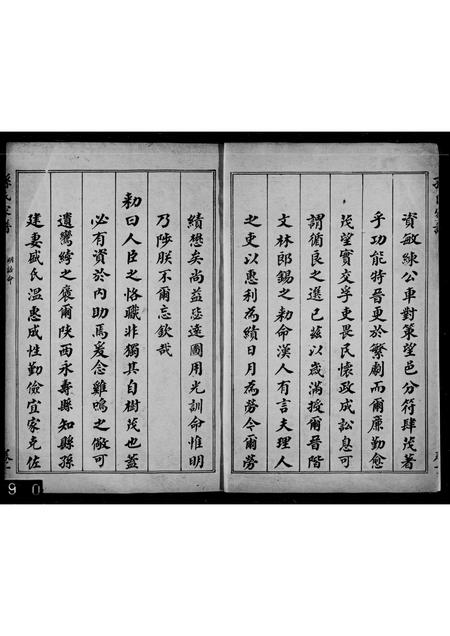 資敏練公車對策望邑分符肆茂著
乎功能特晉更於繁劇而爾廉勤愈
茂望實交孚吏畏民懷政成訟息可
謂循良之選已茲以歲滿授爾晉階
文林郎錫之勑命漢人有言夫理人
之吏以惠利為績日月為勞今爾勞
績懋矣尚益恣遠圖用光訓命惟明
乃陟朕不爾忘欽哉
勑曰人臣之恪職非獨其自樹茂也蓋
必有資於內助焉爰念雞鳴之儆可
遺鸞綺之褒爾陝西永壽縣知縣孫
建妻戚氏溫惠成性勤儉宜家克佐
孫氏家譜
90